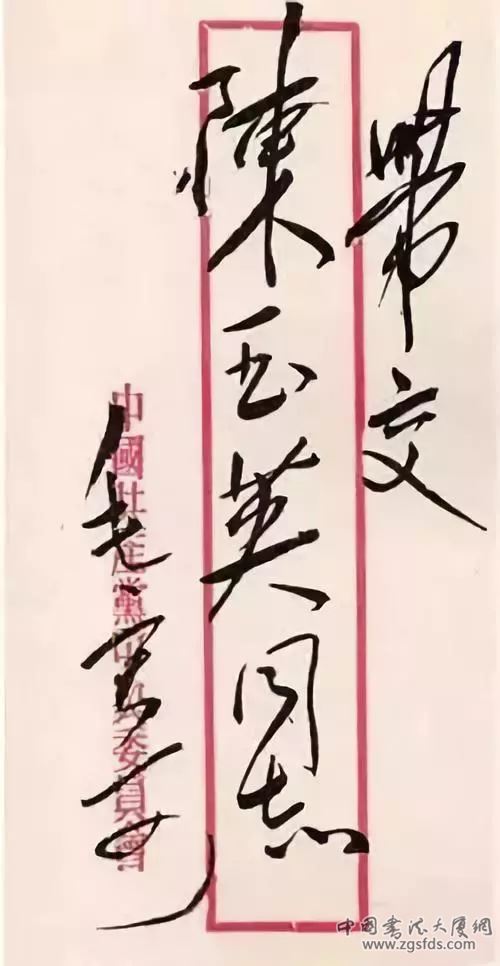 帶交
陳玉英同志
中國共産黨中央委員會
毛寄
中国書法大厦網
www.zgsfds.com